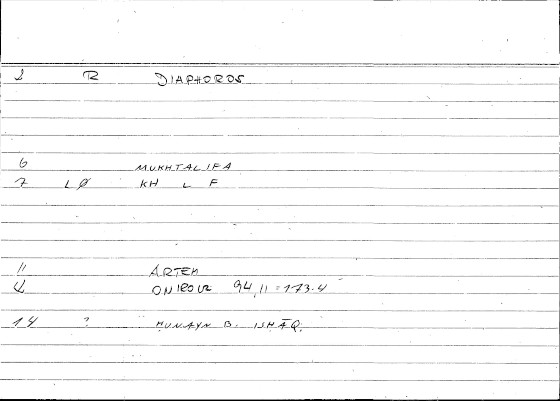 2 R DIAPHOROS
6 MUKHTALIFA
7 LØ KH L F
11 ARTEM
12 ONIROCR 94,11 = 173.4
14 ? HUNAYN B. ISHĀQ.